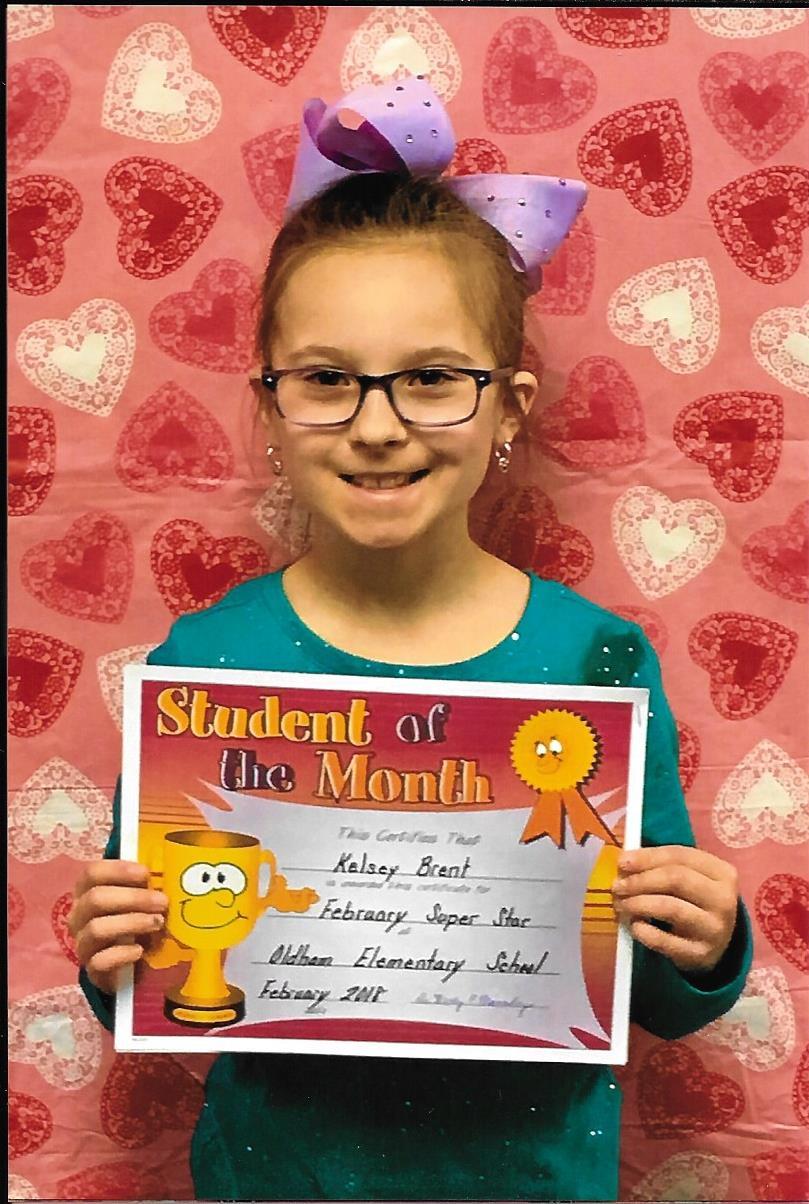 Student of
the Month
This Certifies That
Kelsey Brent
is awarded this certificate for
February Super Star
at
Oldham Elementary School
February 2018